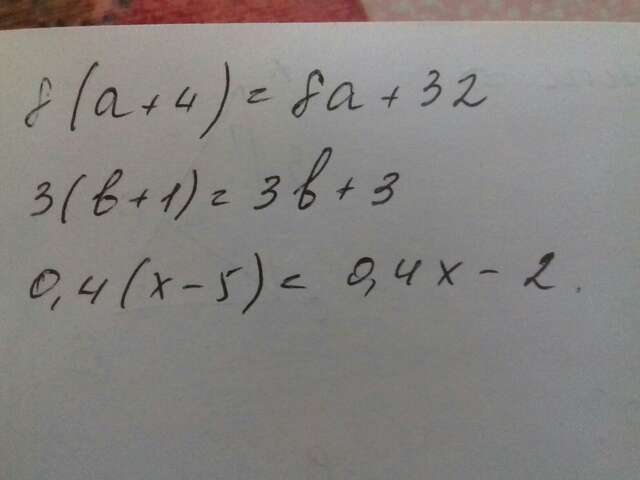 8(a+4)=8a+32
3(в+1)=3в+3
0,4(x-5)=0,4x-2.